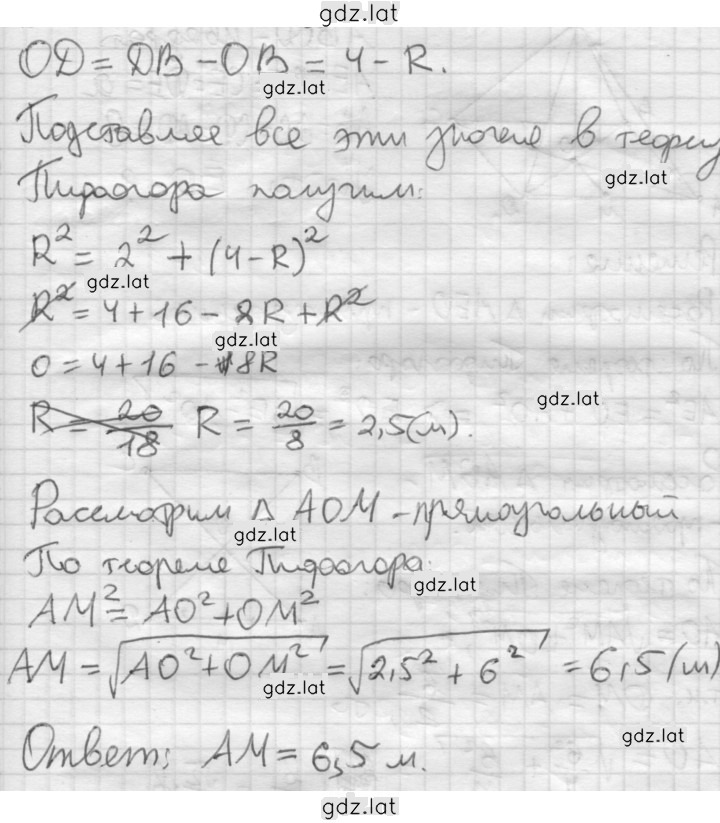 gdz.lat
OD = DB - OB = 4 - R.
gdz.lat
Подставляе все эти значе в теорему
gdz.lat
Пифагора получим:
R² = 2² + (4-R)²
gdz.lat
R² = 4+16 - 8R + R²
gdz.lat
0 = 4+16 - 8R
gdz.lat
R = 20/18 R = 20/8 = 2,5(м).
Рассмотрим Δ AOM - прямоугольный
gdz.lat
По теореме Пифагора:
gdz.lat
AM² = AO² + OM²
AM = √AO² + OM² = √2,5² + 6² = 6,5 (м)
gdz.lat
gdz.lat
Ответ: AM = 6,5 м.
gdz.lat